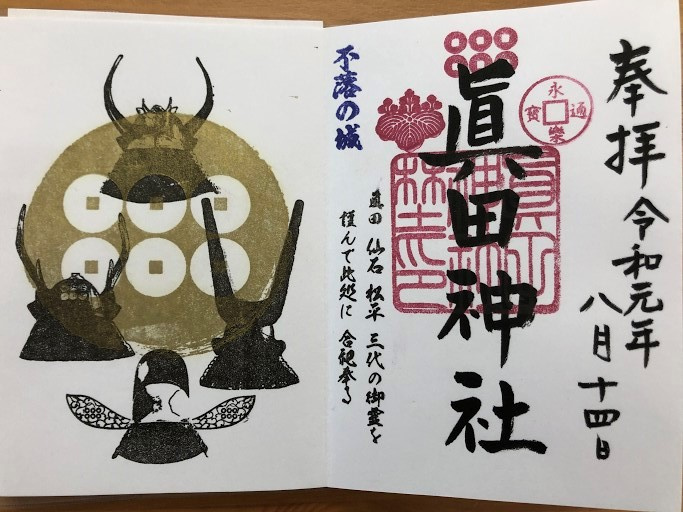 奉拝
令和元年
八月十四日
永樂通寳
眞田神社
不落の城
眞田 仙石 松平 三代の御霊を
謹んで此処に 合祀奉る